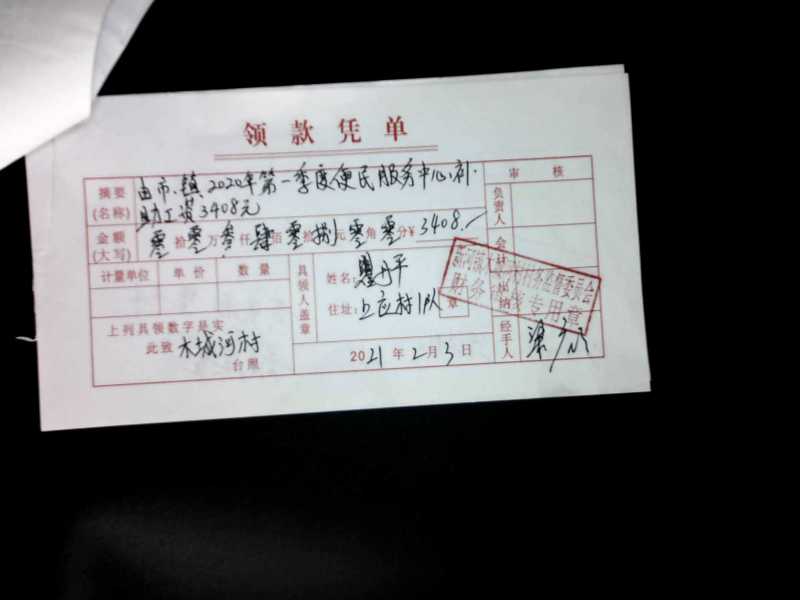 领款凭单
摘要(名称) 由市、镇2020年第一季度便民服务中心补
助工资3408元
审核
负责人
金额(大写) 零拾零万叁仟肆佰零拾捌元零角零分¥3408.
会计
计量单位 单价 数量
具领人盖章
姓名: 丹平
住址: 上应村1队 章
出纳
财务 专用章
上列具领数字是实
此致 木城河村
台照
2021年2月3日
经手人 梁